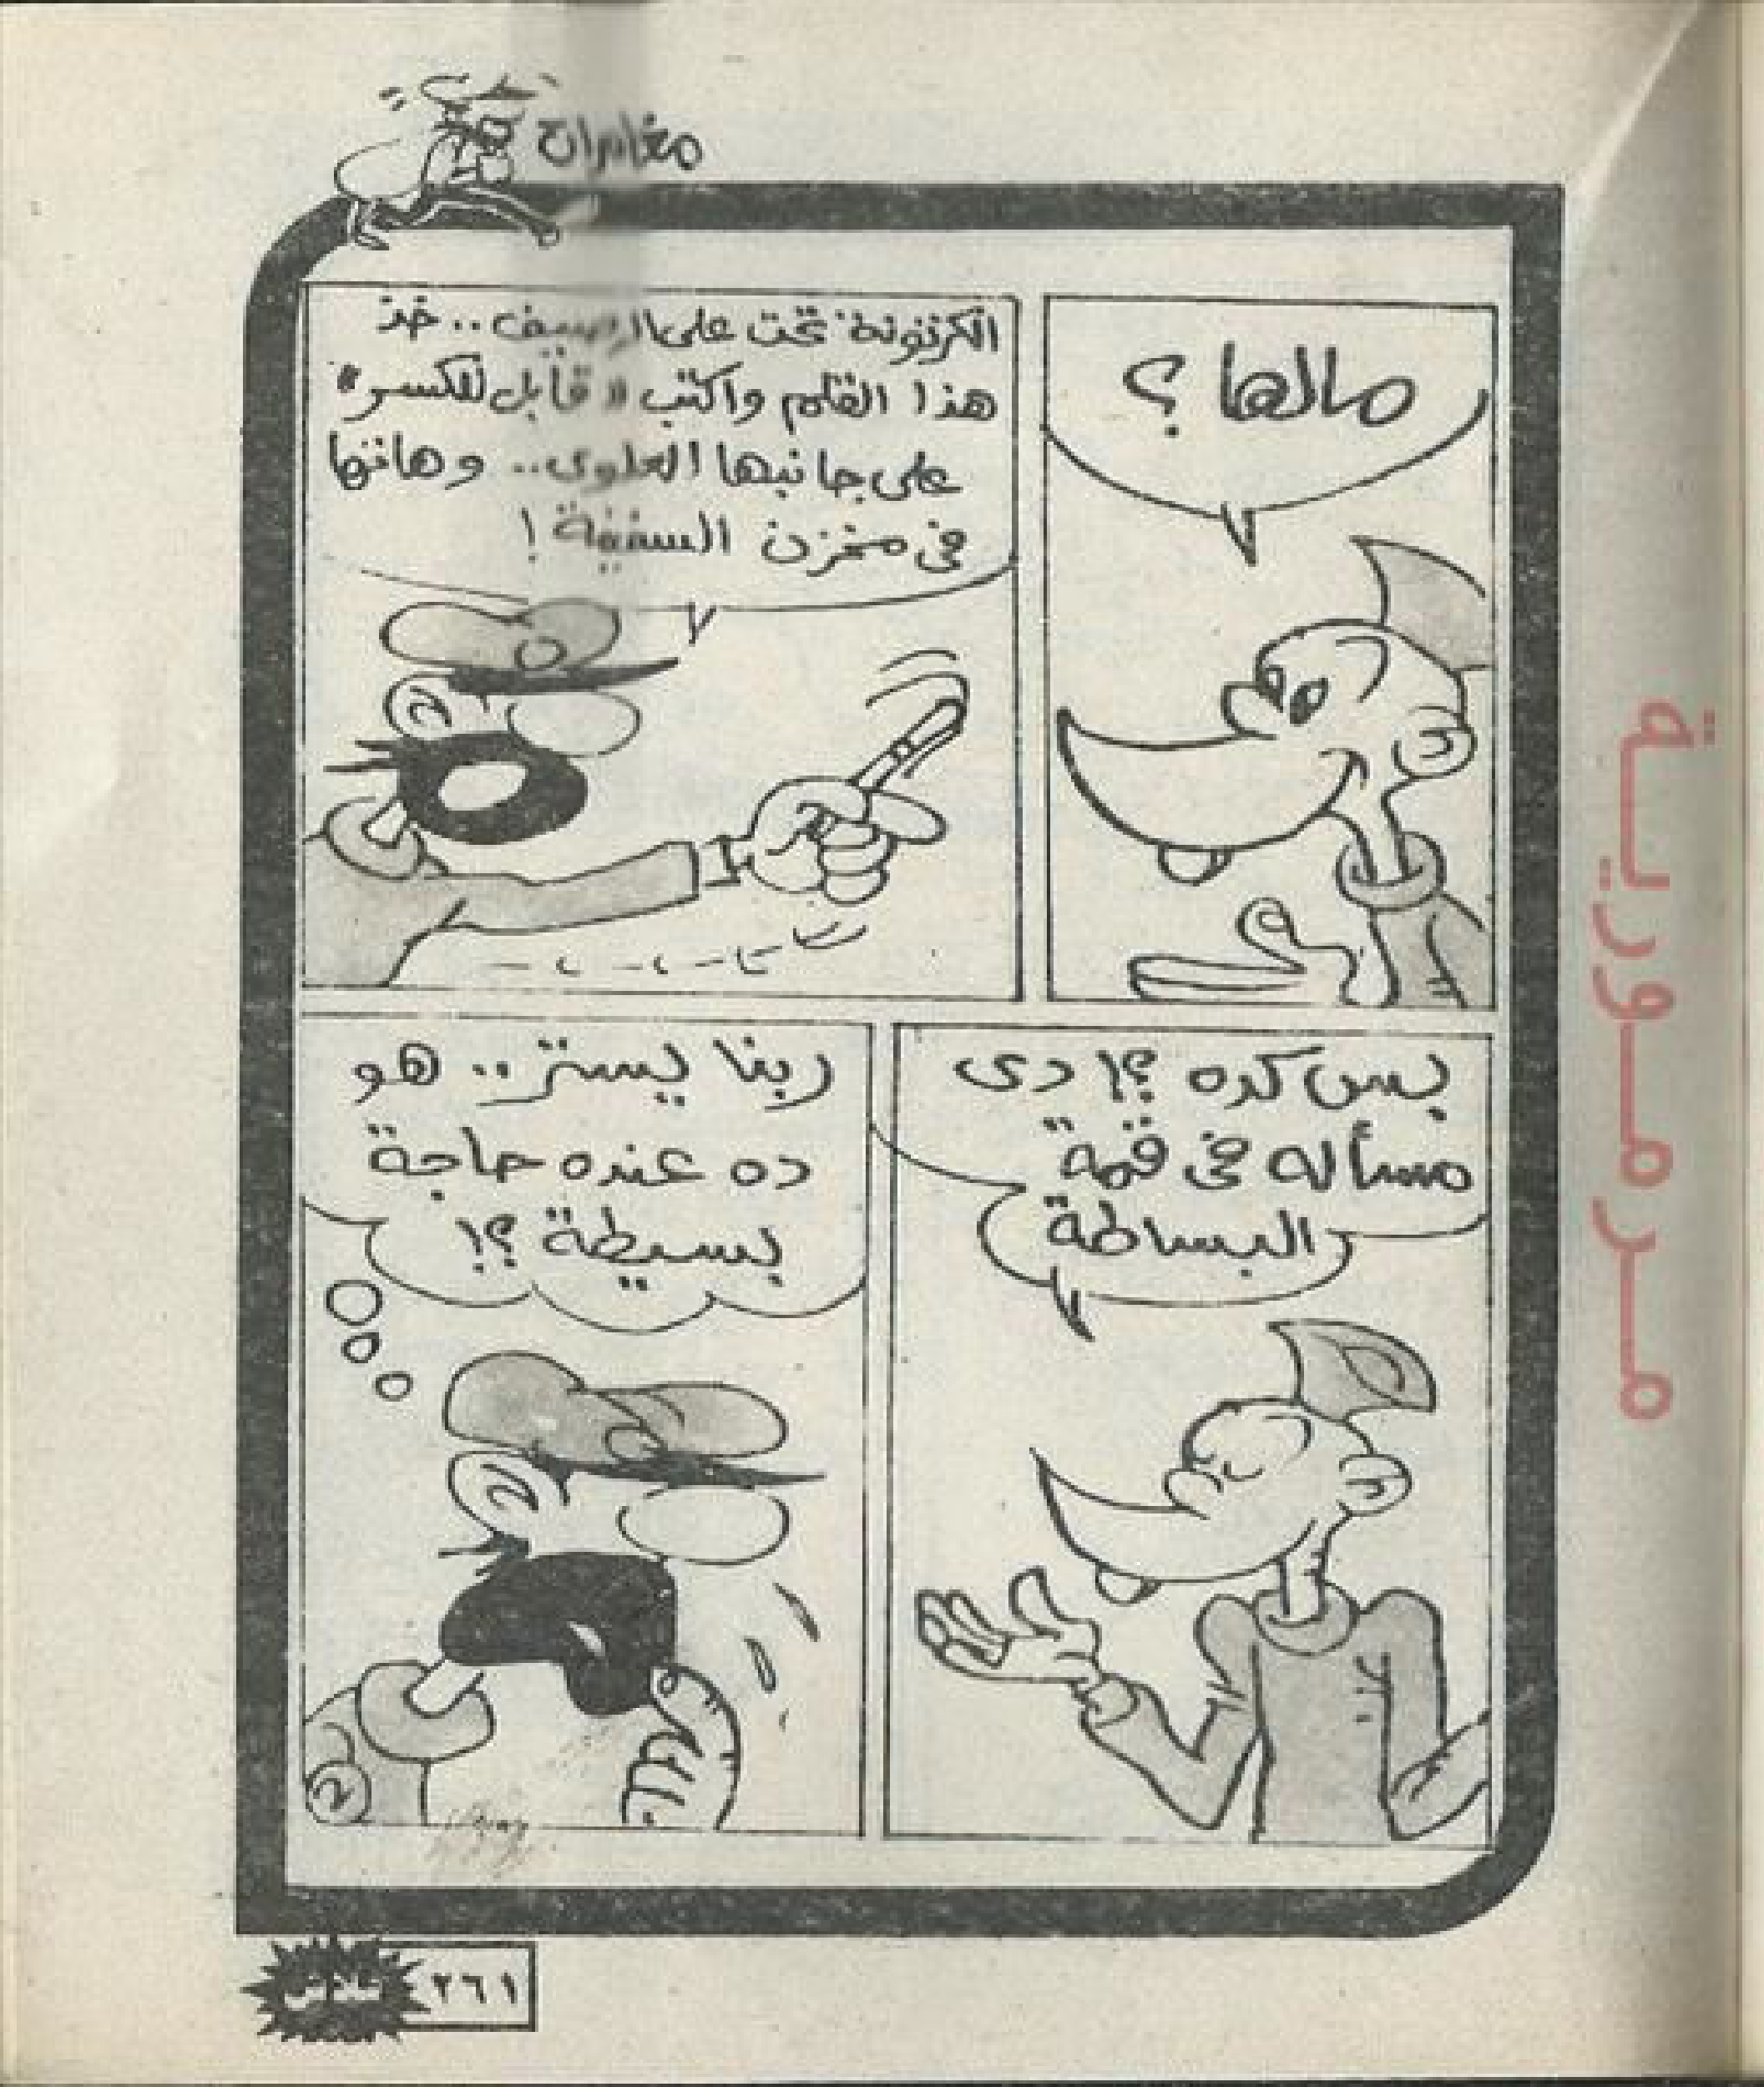 مغامرات
مالها ؟
الكرتونة تحت على الرصيف .. خذ
هذا القلم واكتب « قابل للكسر »
على جانبها العلوى .. وهاتها
فى مخزن السفينة !
بس كده ؟! دى
مسأله فى قمة
البساطة
ربنا يستر .. هو
ده عنده حاجة
بسيطة ؟!
٢٦١
فلاش
مرمورية